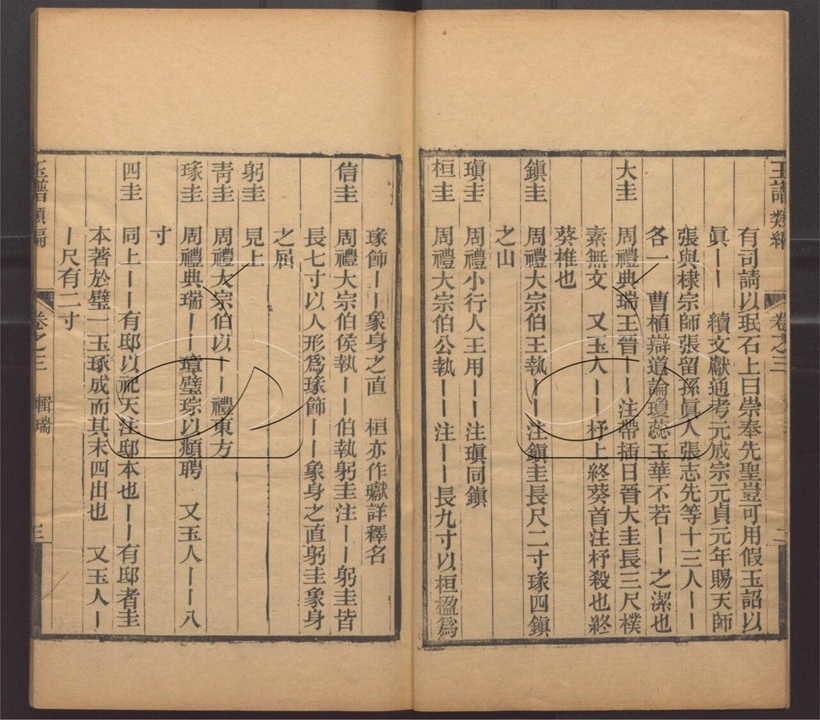 玉譜類編 卷之三 二
有司請以珉石上曰崇奉先聖豈可用假玉詔以
眞丨丨 續文獻通考元成宗元貞元年賜天師
張與棣宗師張留孫眞人張志先等十三人丨丨
各一 曹植辯道論瓊蕊玉華不若丨丨之潔也
大圭 周禮典瑞王晉丨丨注帶插曰晉大圭長三尺樸
素無文 又玉人丨丨杼上終葵首注杼殺也終
葵椎也
鎭圭 周禮大宗伯王執丨丨注鎭圭長尺二寸瑑四鎭
之山
瑱圭 周禮小行人王用丨丨注瑱同鎭
桓圭 周禮大宗伯公執丨丨注丨丨長九寸以桓楹爲
瑑飾丨丨象身之直 桓亦作瓛詳釋名
信圭 周禮大宗伯侯執丨丨伯執躬圭注丨丨躬圭皆
長七寸以人形爲瑑飾丨丨象身之直躬圭象身
之屈
躬圭 見上
靑圭 周禮大宗伯以丨丨禮東方
瑑圭 周禮典瑞丨丨璋璧琮以頫聘 又玉人丨丨八
寸
四圭 同上丨丨有邸以祀天注邸本也丨丨有邸者圭
本著於璧一玉琢成而其末四出也 又玉人丨
丨尺有二寸
玉譜類編 卷之三 輯瑞 三